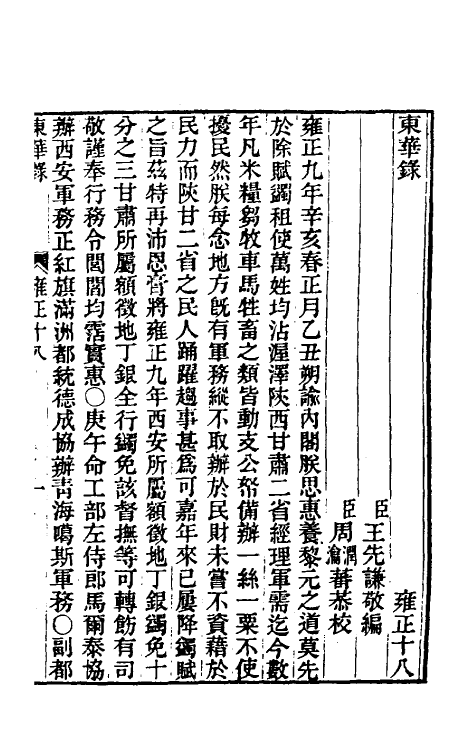 東華錄 雍正十八
臣王先謙敬編
臣周潤蕃瀹蕃恭校
雍正九年辛亥春正月乙丑朔諭內閣朕思惠養黎元之道莫先
於除賦蠲租使萬姓均沾渥澤陝西甘肅二省經理軍需迄今數
年凡米糧芻牧車馬牲畜之類皆動支公帑備辦一絲一粟不使
擾民然朕每念地方旣有軍務縱不取辦於民財未嘗不資藉於
民力而陝甘二省之民人踴躍趨事甚爲可嘉年來已屢降蠲賦
之旨茲特再沛恩膏將雍正九年西安所屬額徵地丁銀蠲免十
分之三甘肅所屬額徵地丁銀全行蠲免該督撫等可轉飭有司
敬謹奉行務令閭閻均霑實惠○庚午命工部左侍郎馬爾泰協
辦西安軍務正紅旗滿洲都統德成協辦青海噶斯軍務○副都
東華錄 雍正十八 一